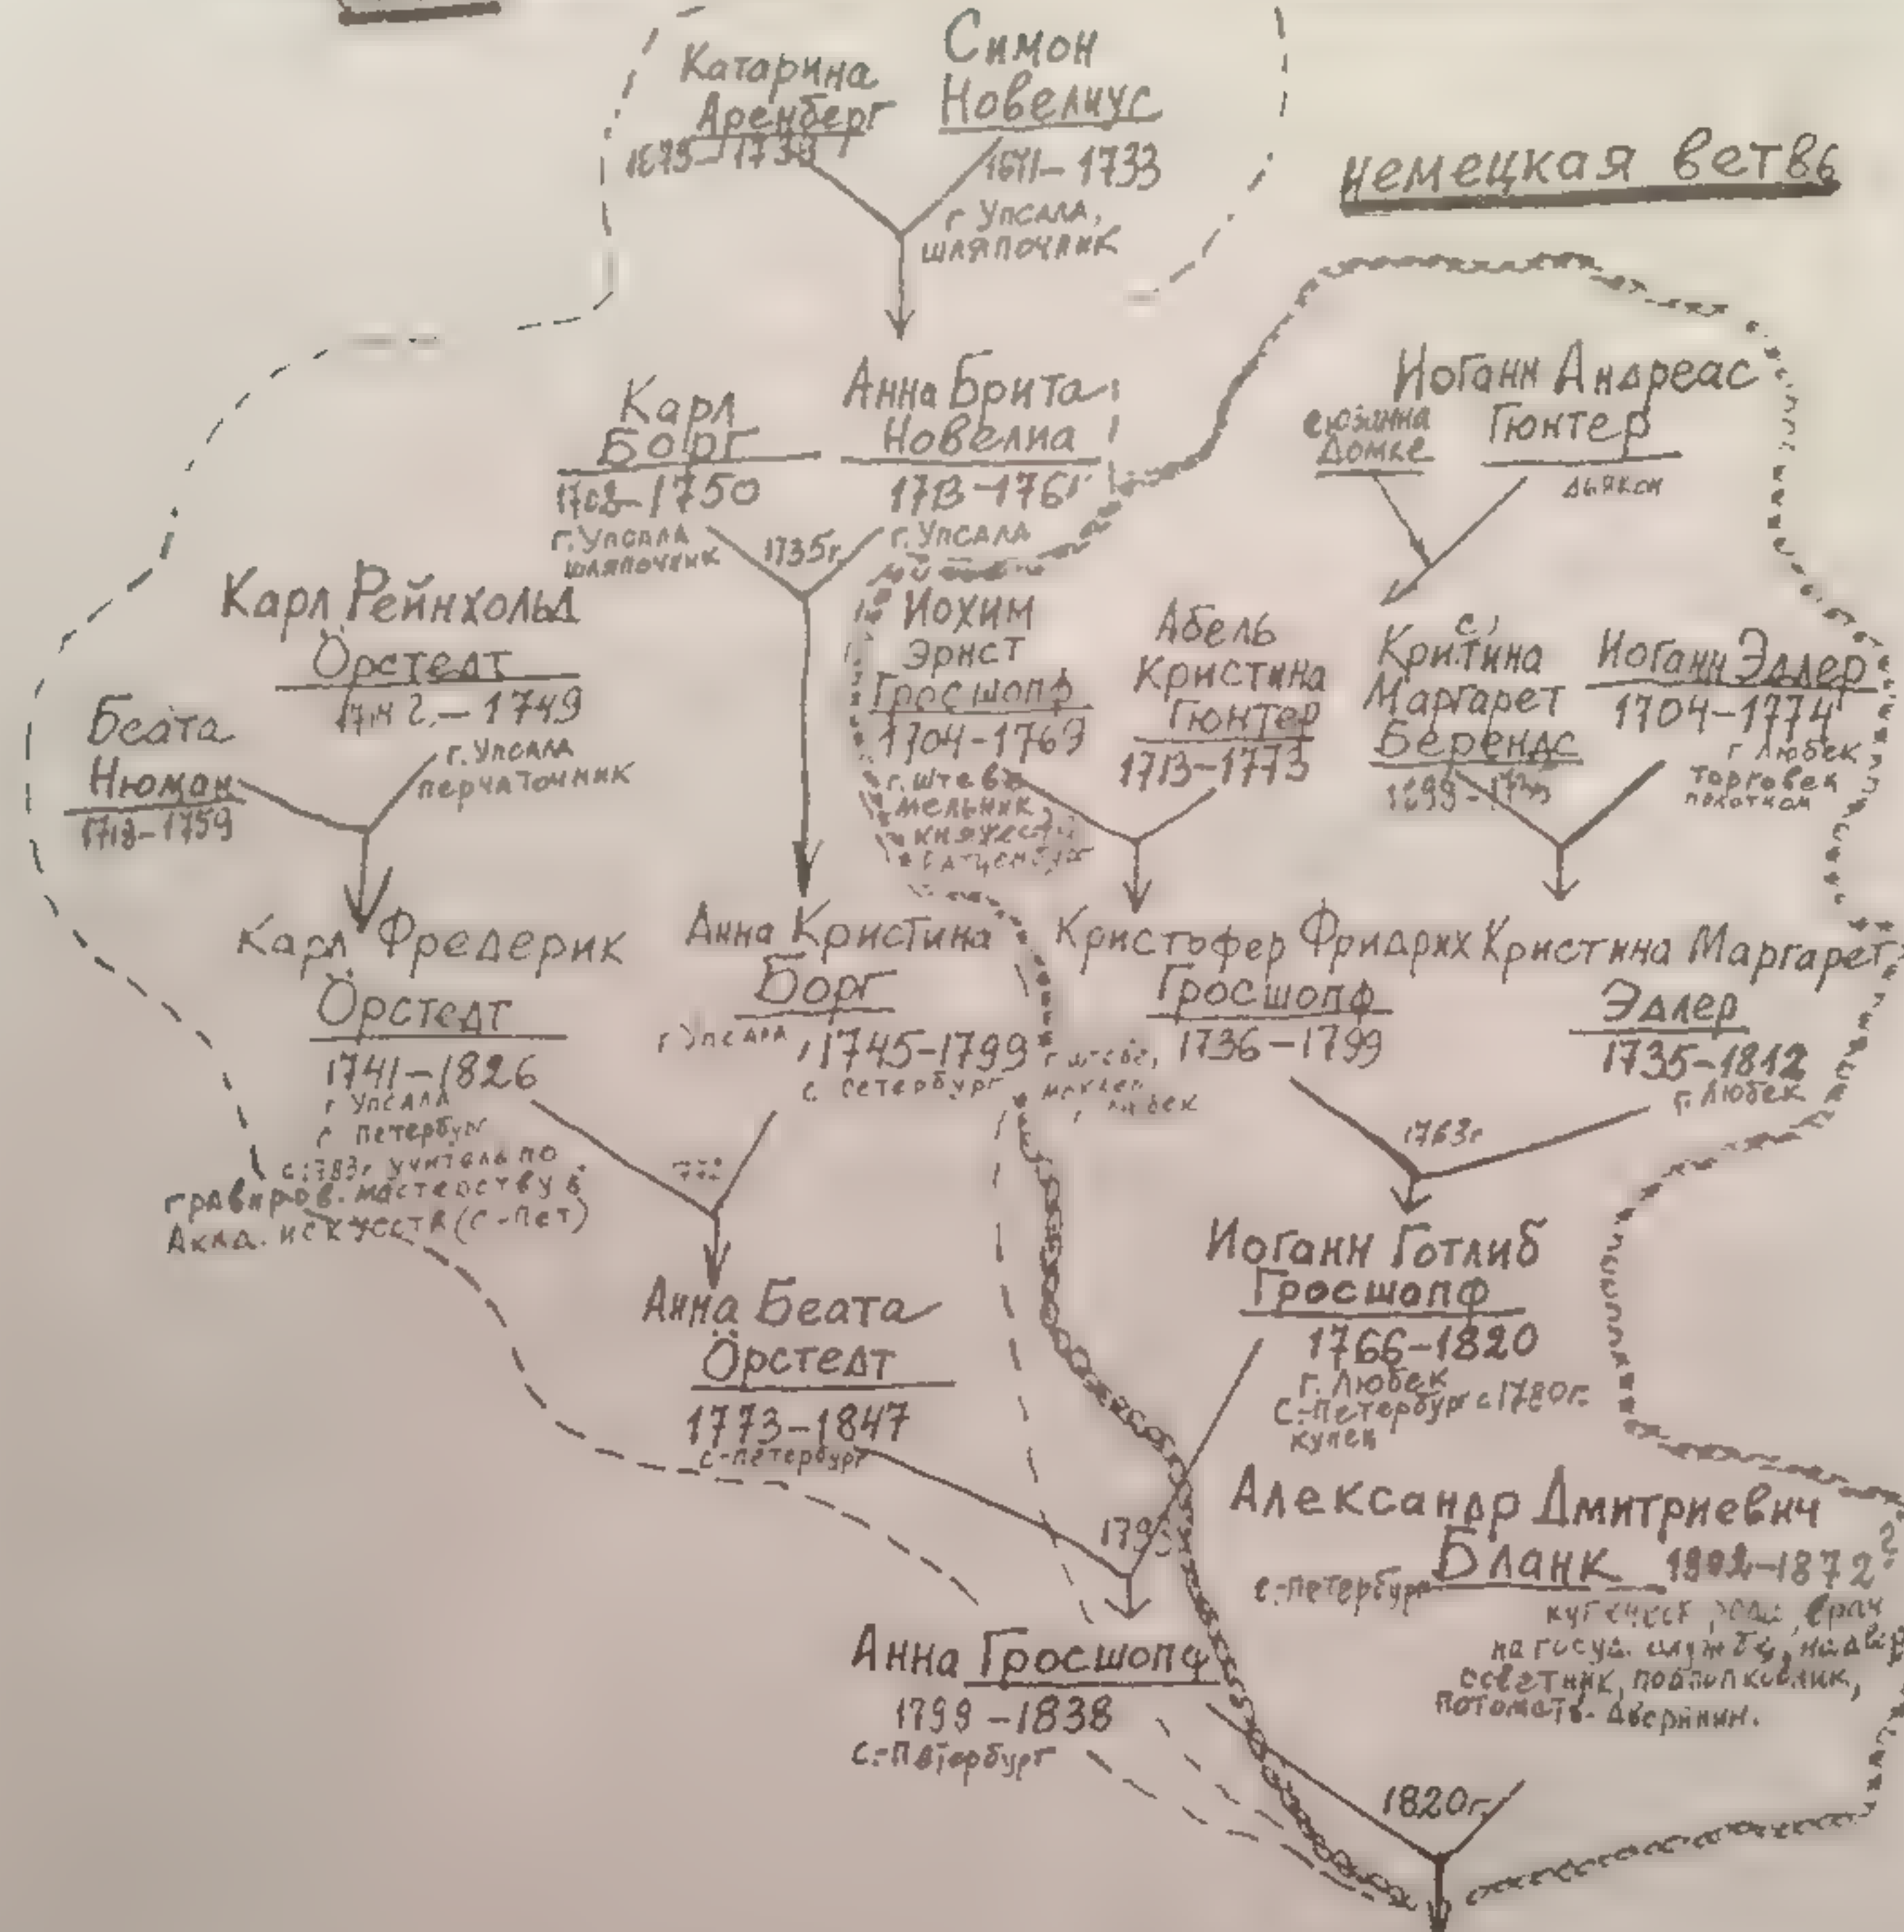 Катарина
Аренберг
Симон
Новелиус
1671-1733
г Упсала,
шляпочник
немецкая ветвь
Карл
Борг
1708-1750
г. Упсала
шляпочник
Анна Брита
Новелиа
1713-1761
г. Упсала
1735г.
Иоганн Андреас
Гюнтер
дьякон
Сюзанна
Домке
Карл Рейнхольд
Örстедт
- 1749
г. Упсала
перчаточник
Беата
Нюман
1718-1759
Иохим
Эрнст
Гросшопф
1704-1769
мельник
Абель
Кристина
Гюнтер
1713-1773
с,
Критина
Маргарет
Берендс
Иоганн Эдлер
1704-1774
г Любек
торговец
полотном
Карл Фредерик
Öрстедт
1741-1826
г Упсала
С Петербург
с 1783г учитель по
гравиров. мастерству в
Акад. искусств (С-Пет)
Анна Кристина
Борг
г Упсала, 1745-1799
С Петербург
Кристофер Фридрих
Гросшопф
1736-1799
Кристина Маргарет
Эдлер
1735-1812
г. Любек
1763г
Анна Беата
Öрстедт
1773-1847
С-Петербург
Иоганн Готлиб
Гросшопф
1766-1820
г. Любек
С.-Петербург с 1780г.
купец
Александр Дмитриевич
Бланк
-1872
С.-Петербург
врач
на госуд. службе,
советник, подполковник,
Анна Гросшопф
1799-1838
С.-Петербург
1820г.